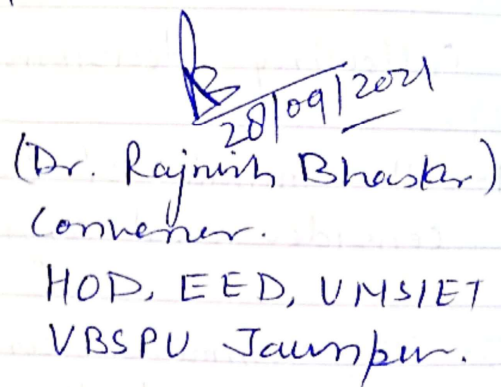 28/09/2021
(Dr. Rajnish Bhaskar)
Convener.
HOD, EED, UNSIET
VBSPU Jaunpur.